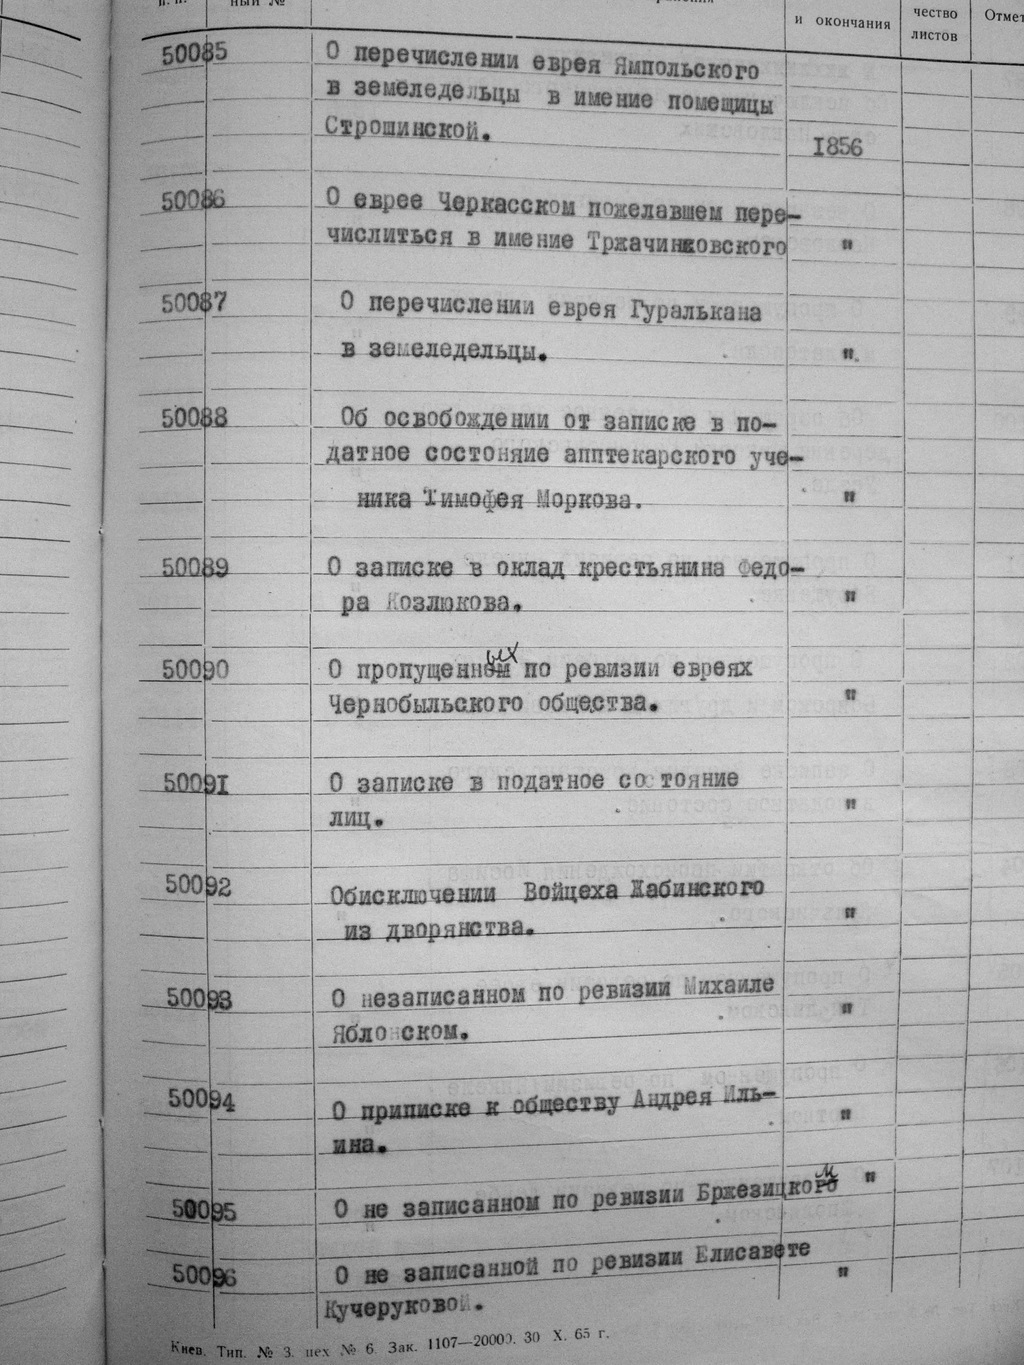 ный №
чество
и окончания
листов
Отмет
50085 О перечислении еврея Ямпольского
в земеледельцы в имение помещицы
Строшинской.
1856
50086 О еврее Черкасском пожелавшем пере-
числиться в имение Тржачинковского "
50087 О перечислении еврея Гуралькана
в земеледельцы. "
50088 Об освобождении от записке в по-
датное состояние апптекарского уче-
ника Тимофея Моркова. "
50089 О записке в оклад крестьянина Федо-
ра Козлюкова. "
50090 О пропущенных по ревизии евреях
Чернобыльского общества. "
50091 О записке в податное состояние
лиц. "
50092 Обисключении Войцеха Жабинского
из дворянства. "
50093 О незаписанном по ревизии Михаиле
Яблонском. "
50094 О приписке к обществу Андрея Иль-
ина. "
50095 О не записанном по ревизии Бржезицком "
50096 О не записанной по ревизии Елисавете
Кучеруковой. "
Киев. Тип. № 3. цех № 6. Зак. 1107—20000. 30 X. 65 г.